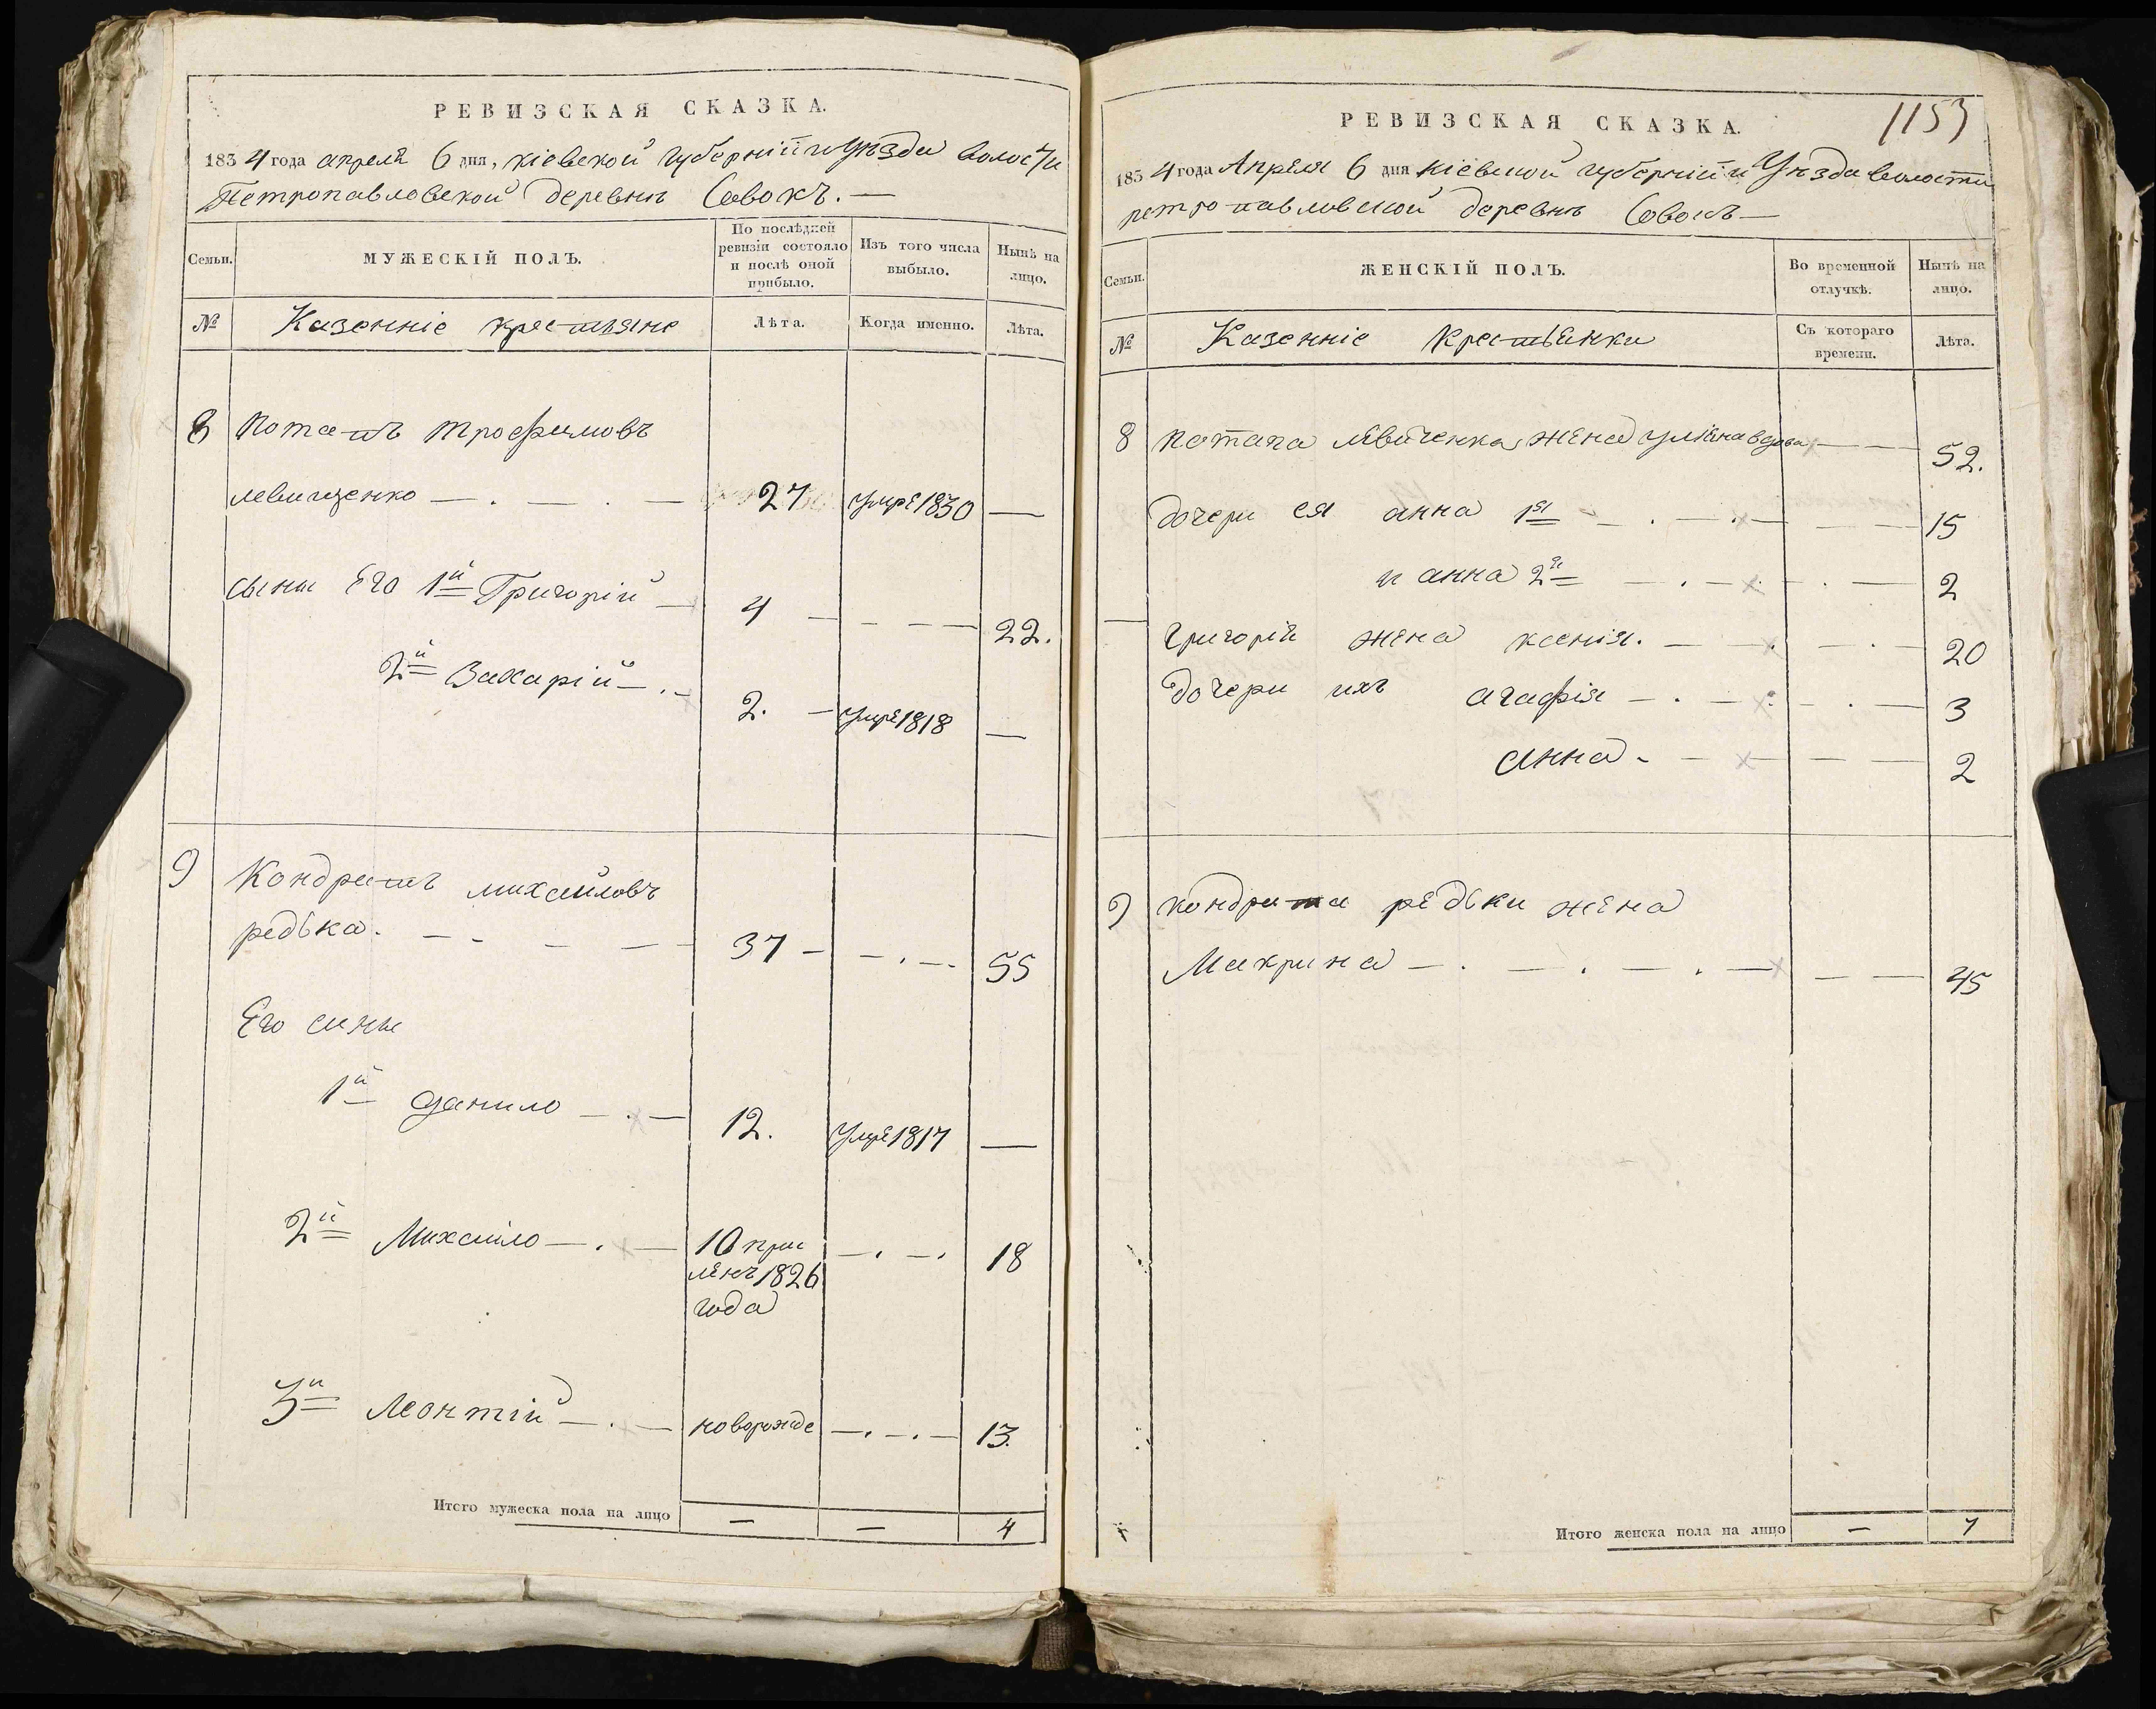 РЕВИЗСКАЯ СКАЗКА.
1834 года апреля 6 дня, кіевской губерній и Уезда волости
Петропавловской деревни Совокъ. —
Семьи.
МУЖЕСКІЙ ПОЛЪ.
По послѣдней ревизіи состояло и послѣ оной прибыло.
Изъ того числа выбыло.
Нынѣ на лицо.
№
Казенніе крестьяне
Лѣта.
Когда именно.
Лѣта.
8 Потапъ трофимовъ
левищенко — . — . — 27 умре 1830 —
сыны Его 1й Григорій — 4 — — — — 22.
2й Захарій — . - 2. — умре 1818 —
9 Кондратъ михайловъ
редька. — - — — 37 — — . — . 55
Его сины
1й данило — . — 12. Умре 1817 —
2й Михайло — . — 10 при — . — . 18
ленъ 1826
года
3й Леонтій — . — новорожде — . — . — 13.
Итого мужеска пола на лицо — — 4
1153
РЕВИЗСКАЯ СКАЗКА.
1834 года Апреля 6 дня кіевской губерній и Уезда волости
петропавловской деревни Совокъ —
Семьи.
ЖЕНСКІЙ ПОЛЪ.
Во временной отлучкѣ.
Нынѣ на лицо.
№
Казенніе Крестьянки
Съ котораго времени.
Лѣта.
8 Потапа левиченка жена уліяна вдова — — 52.
дочери ея анна 1я — . — . — — — 15
и анна 2я — . — . — . — 2
григорій жена ксенія. — — . — . — 20
дочери ихъ агафія — . — . — . — 3
анна - — — — — 2
9 кондрата редьки жена
Макрина — . — . — . — — — 45
Итого женска пола на лицо — 7